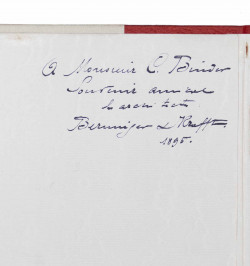 A Monsieur C. Binder
Souvenir amical
Berninger & Krafft
1895.